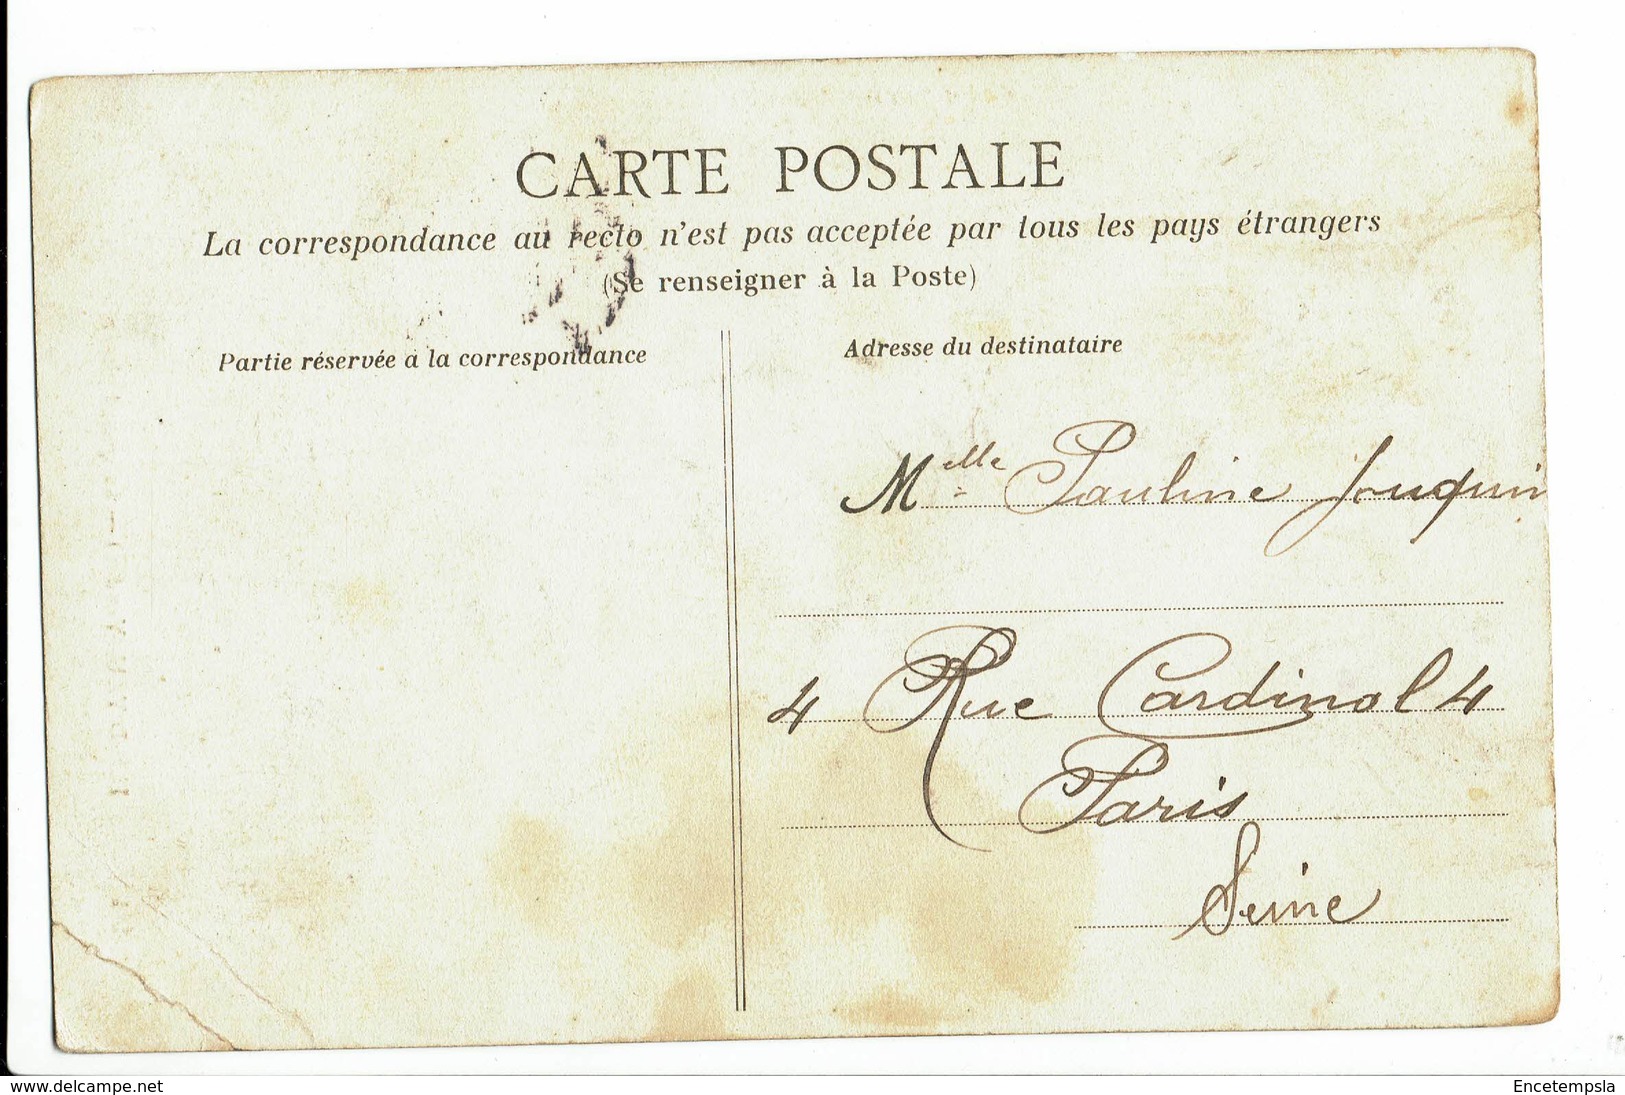 CARTE POSTALE
La correspondance au recto n'est pas acceptée par tous les pays étrangers
(Se renseigner à la Poste)
Partie réservée à la correspondance
Adresse du destinataire
Melle Pauline Jouquin
4 Rue Cardinal 4
Paris
Seine
www.delcampe.net
Encetempsla